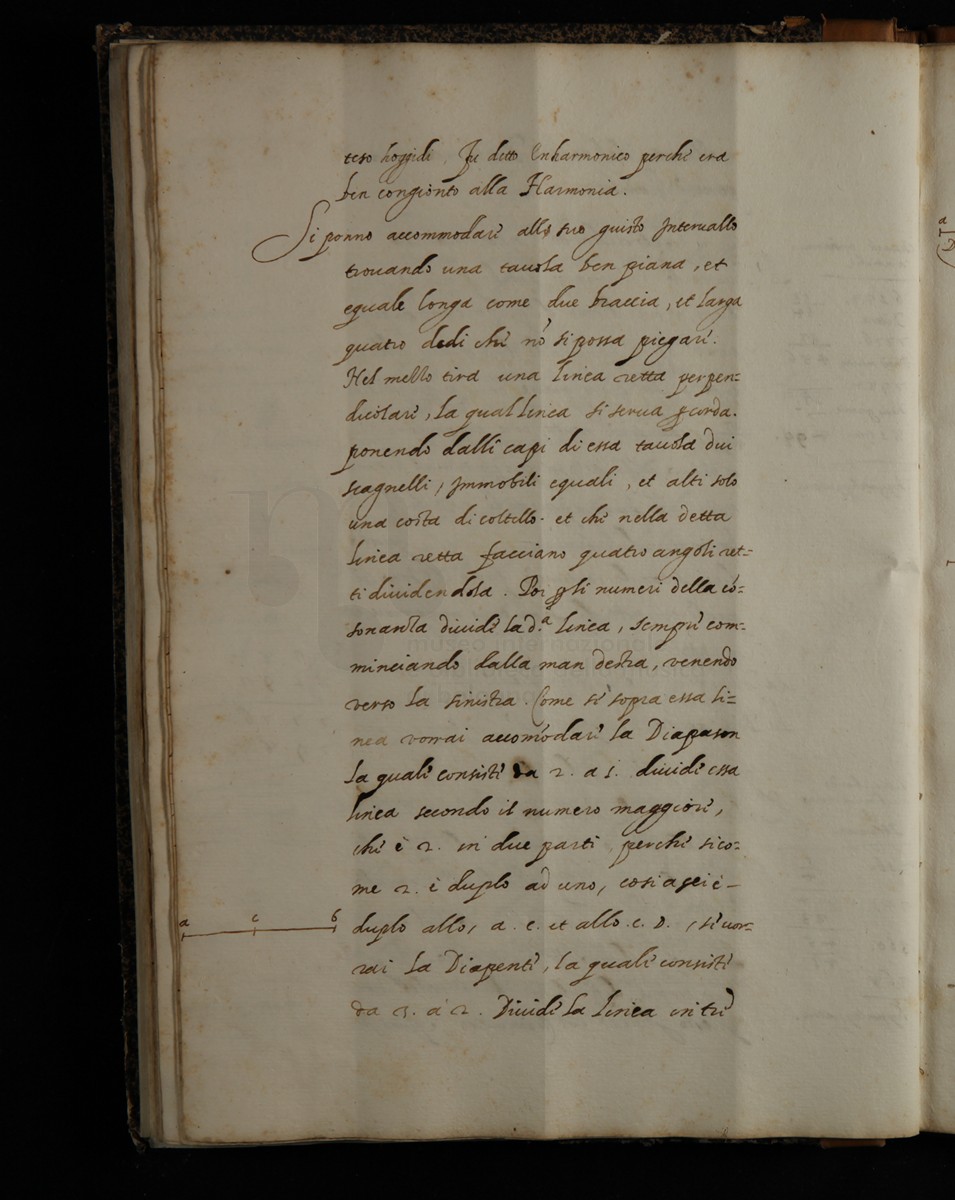 teso hoggidi, Fu detto Enharmonico perche era
ben congionto alla Harmonia.
Si ponno accommodare allo suo giusto Intervallo
trovando una tavola ben piana, et
eguale longa come due braccia, et larga
quatro dedi che nō si possa piegare.
Nel mezzo tira una linea retta perpen=
dicolare, la qual linea si serva p corda.
ponendo dalli capi di essa tavola dui
scagnelli, Immobili eguali, et alti solo
una costa di coltello. et che nella detta
linea retta facciano quatro angoli ret=
ti dividendola. Poi p gli numeri della cō=
sonanza divide la d.ª linea, sempre com=
minciando dalla man destra, venendo
verso la sinistra. Come se sopra essa li=
nea vorrai accomodare la Diapason
la quale consiste da 2. a 1. divide essa
linea secondo il numero maggiore,
che è 2. in due parti, perche sico=
me 2. è duplo ad uno, cosi a è
duplo allo, a. c. et allo. c. b., se vor=
rai la Diapente, la quale consiste
da 3. a 2. Divide la linea in tre
a c b
museo